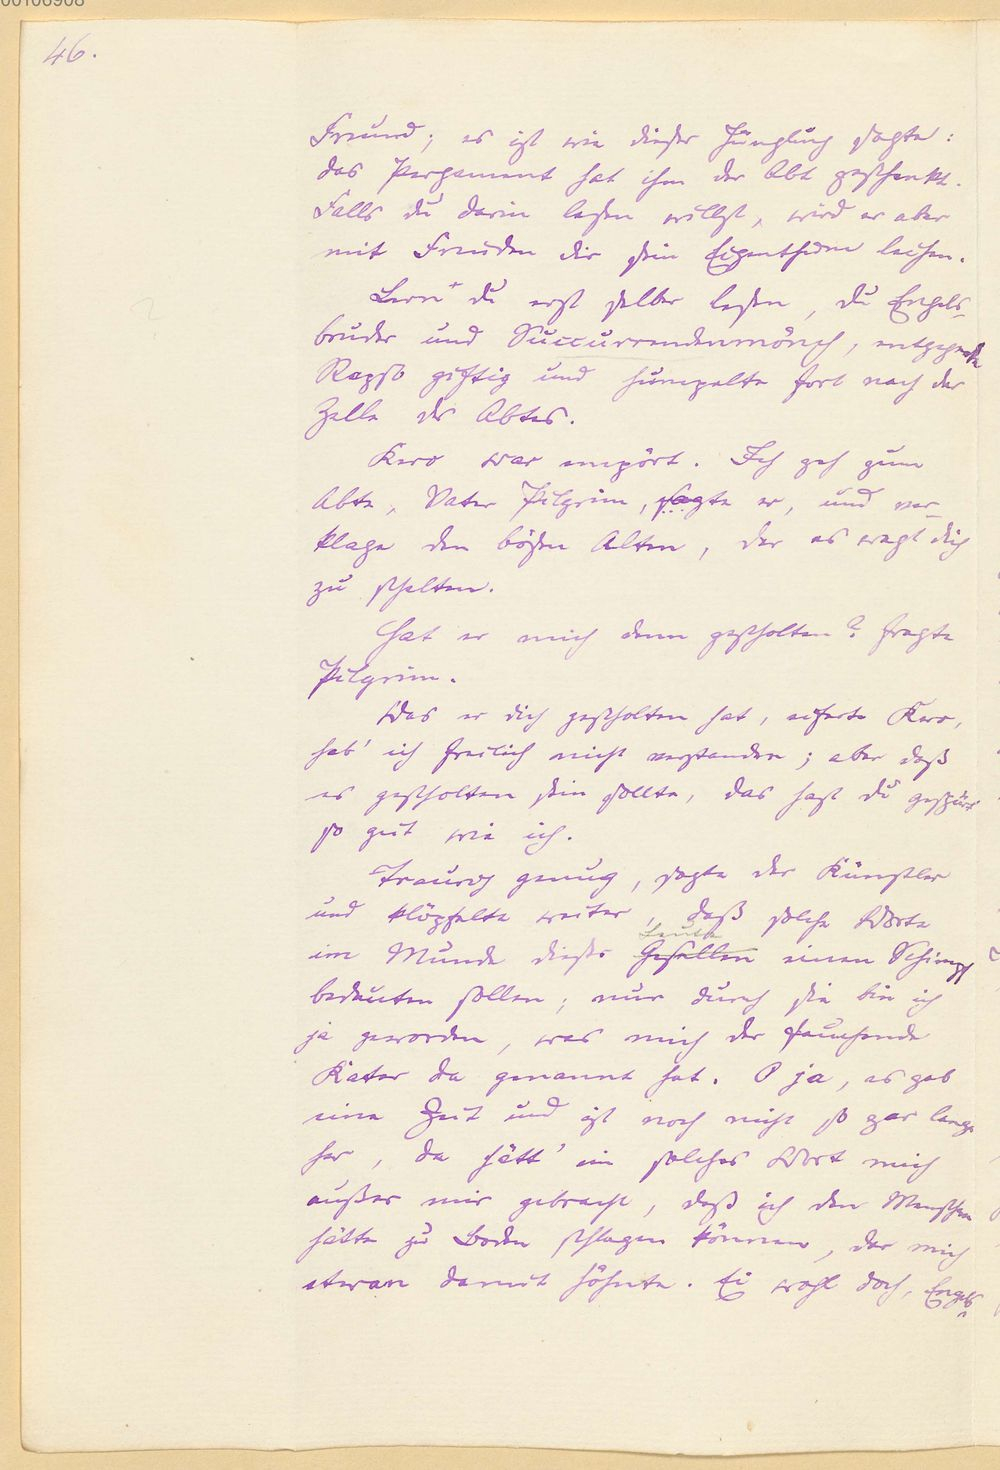 00106908
46.
Freund; es ist wie dieser Jüngling sagte:
das Pergament hat ihm der Abt geschenkt.
Falls du darin lesen willst, wird er aber
mit Freuden dir sein Eigenthum leihen.
Lern' du erst selber lesen, du Engels-
bruder und Succurrendenmönch, entgegnete
giftig und humpelte fort nach der
Zelle des Abtes.
Kero war empört. Ich geh zum
Abte, Vater Pilgrim, sagte er, und ver-
klage den bösen Alten, der es wagt dich
zu schelten.
Hat er mich denn gescholten? fragte
Pilgrim.
Was er dich gescholten hat, eiferte Kero,
hab' ich freilich nicht verstanden; aber daß
es gescholten sein sollte, das hast du gespürt
so gut wie ich.
Traurig genug, sagte der Künstler
und klöpfelte weiter, daß solche Worte
Leute
im Munde dieses Gesellen einen Schimpf
bedeuten sollen; nur durch sie bin ich
ja geworden, was mich der fauchende
Kater da genannt hat. O ja, es gab
eine Zeit und ist noch nicht so gar lange
her, da hätt' ein solches Wort mich
außer mir gebracht, daß ich den Menschen
hätte zu Boden schlagen können, der mich
etwan damit höhnte. Ei wohl doch, Engels-